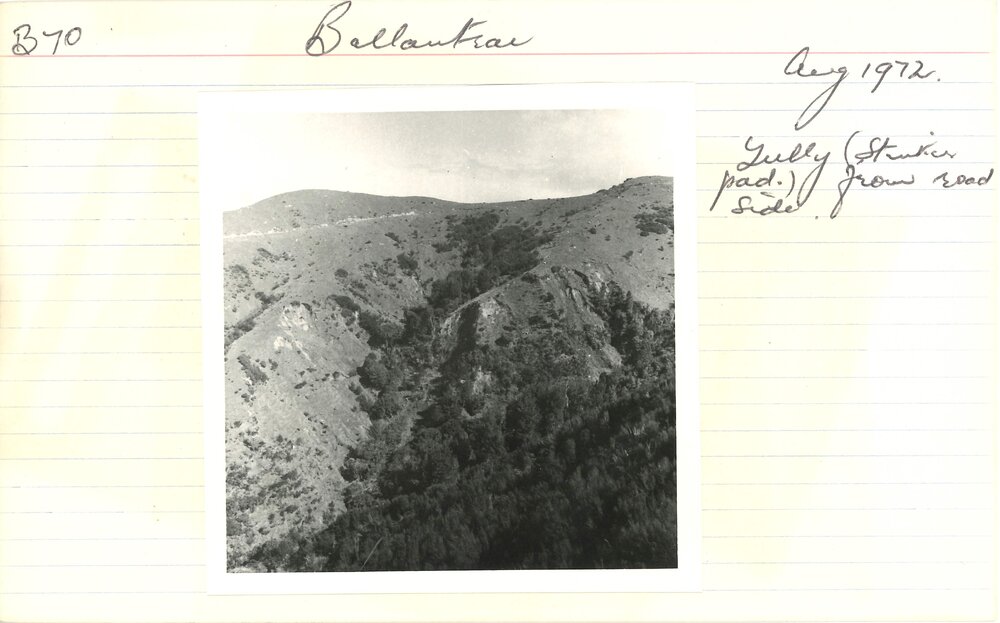 B70
Ballantrae
Aug 1972.
Gully (Stinkie
pad.) from road
side.